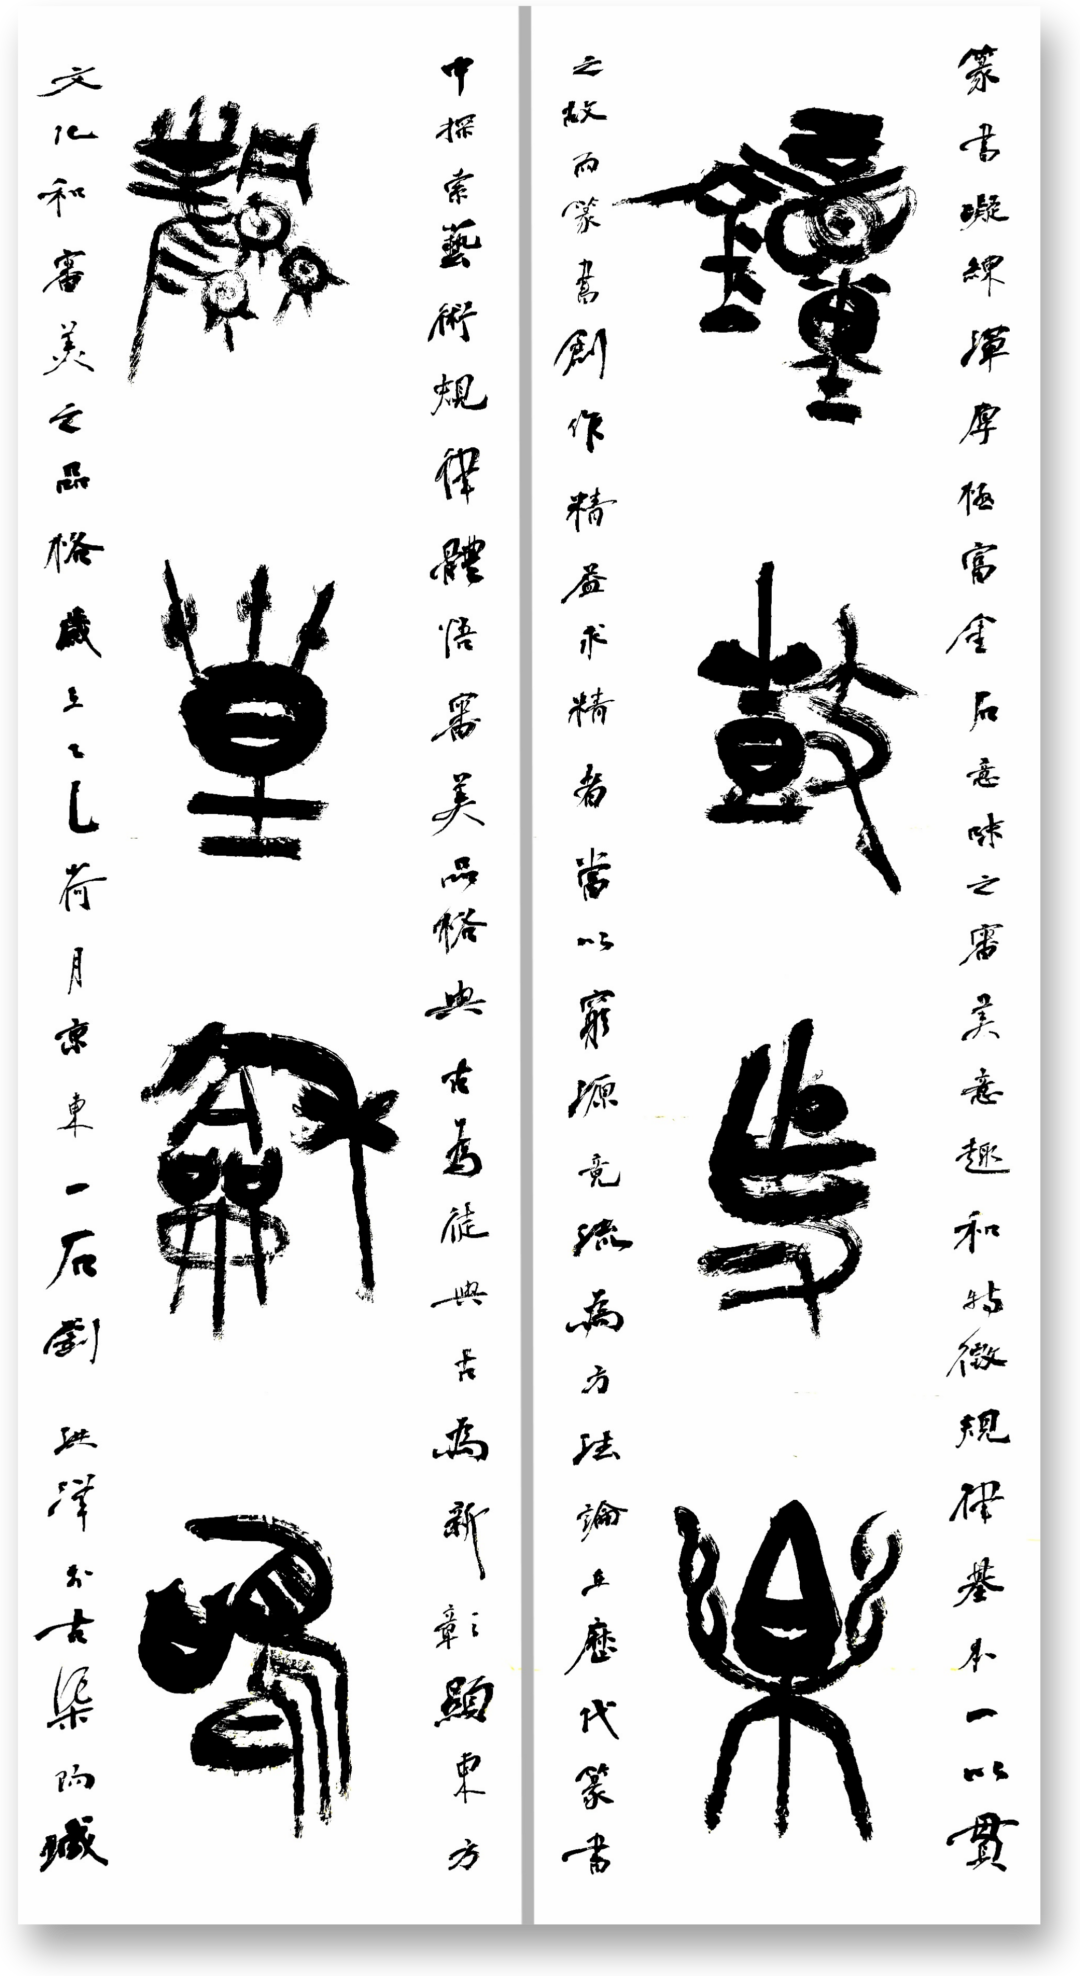 篆書凝練渾厚極富金石意味之審美意趣和特徵規律基本一以貫
鐘鼓樂
之故而篆書創作精益求精者當以窮源竟流為方法論在歷代篆書
中探索藝術規律體悟審美品格與古為徒與古為新彰顯東方
堂龢鳴
文化和審美之品格歲在乙巳荷月京東一石劉洪洋於古渠陶